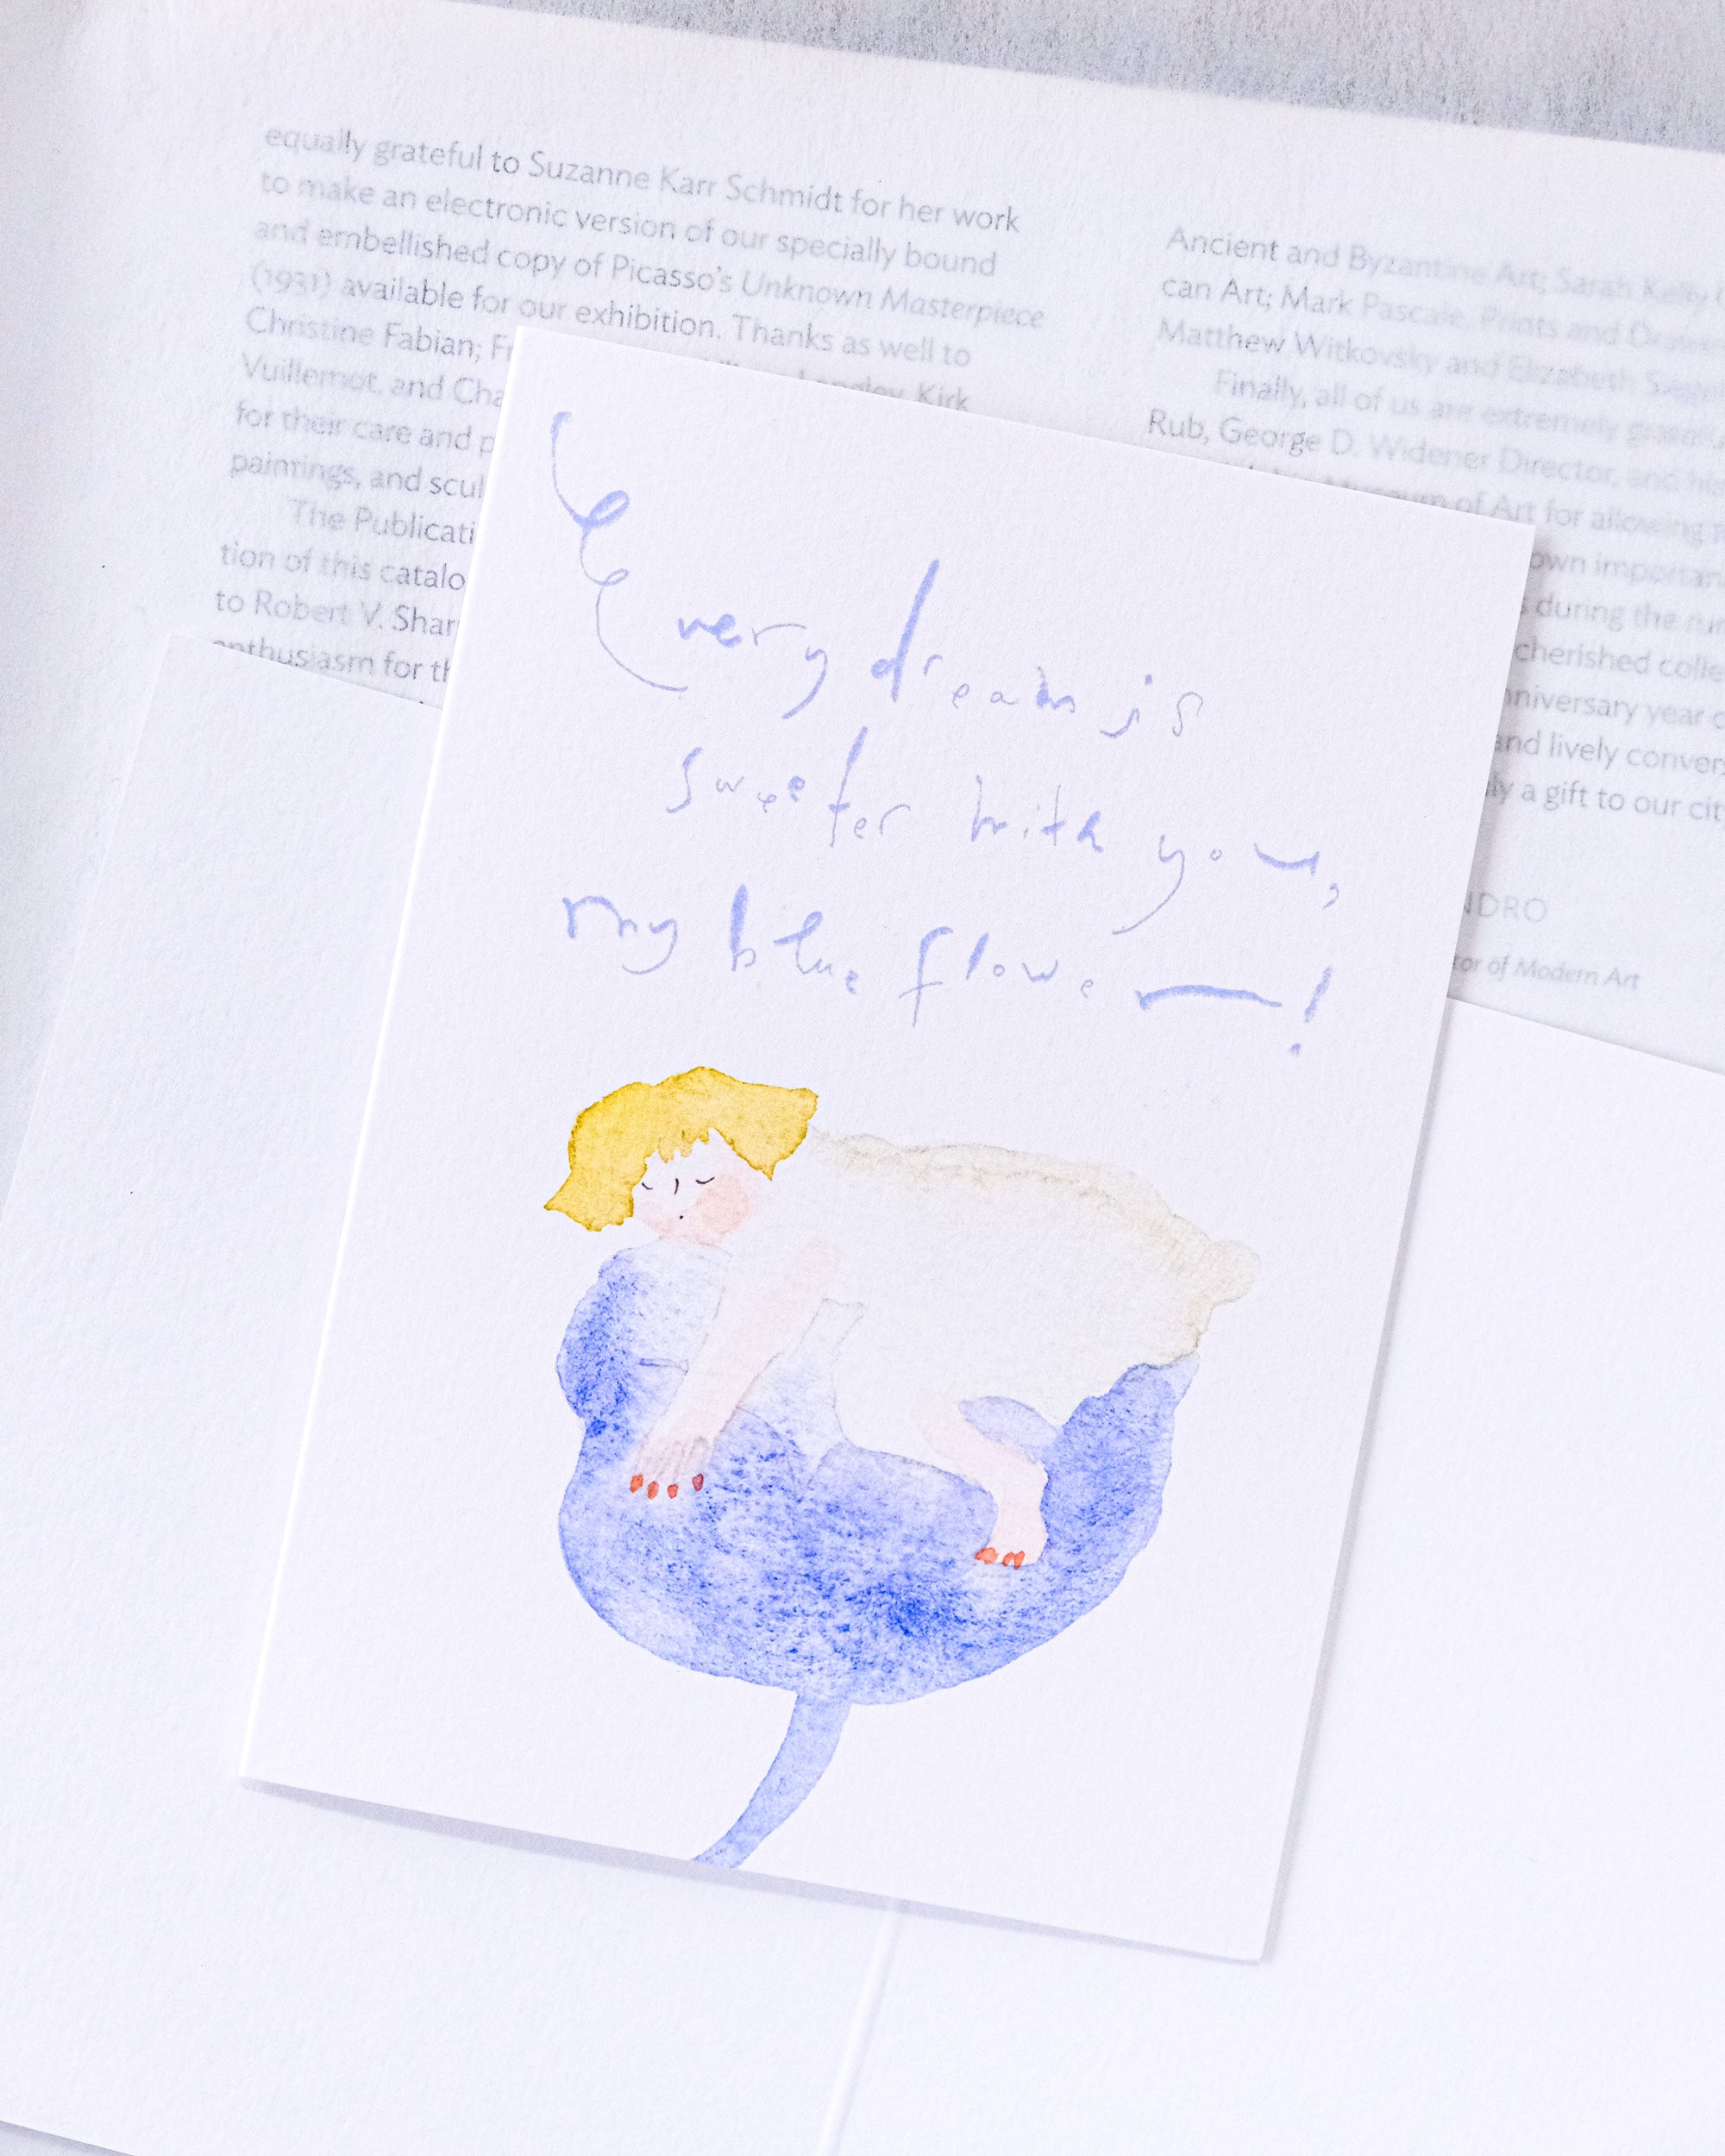 equally grateful to Suzanne Karr Schmidt for her work
to make an electronic version of our specially bound
and embellished copy of Picasso's Unknown Masterpiece
(1931) available for our exhibition. Thanks as well to
Christine Fabian;
Vuillemot, and
Langley, Kirk
for their care and
paintings, and
The
tion of this
to Robert V.
enthusiasm for
Ancient and Byzantine Art; Sarah Kelly
can Art; Mark Pascale, Prints and
Matthew Witkovsky and Elizabeth
Finally, all of us are extremely
Rub, George D. Widener Director, and his
Museum of Art for allowing
own
during the
cherished
year
and lively
a gift to our
of Modern Art
Every dream is
sweeter with you,
my blue flower!